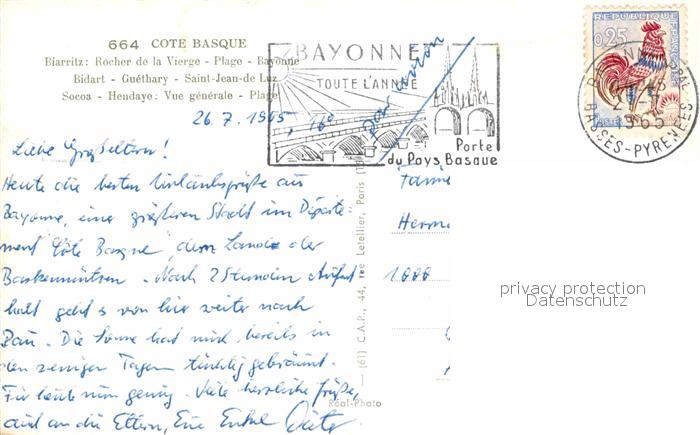 664 COTE BASQUE
Biarritz: Rocher de la Vierge - Plage - Bayonne
Bidart - Guéthary - Saint-Jean-de Luz
Socoa - Hendaye: Vue générale - Plage
BAYONNE
TOUTE L'ANNÉE
Porte
du Pays Basque
RÉPUBLIQUE FRANÇAISE
0,25
POSTES
BAYONNE PPAL
1965
BASSES-PYRENEES
par avion
26.7.1965, 16°
Liebe Großeltern!
Heute die besten Urlaubsgrüße aus
Bayonne, einer größeren Stadt im Départe-
ment "Côte Basque", dem Lande der
Baskenmützen. Nach 2 Stunden Aufent
halt geht's von hier weiter nach
Pau. Die Sonne hat mich bereits in
den wenigen Tagen tüchtig gebräunt.
Für heute nun genug. Viele herzliche Grüße,
auch an die Eltern, Euer Enkel Dieter
Réal-Photo
(61) C.A.P., 44, rue Letellier, Paris
Fami
Herm
1000
privacy protection
Datenschutz